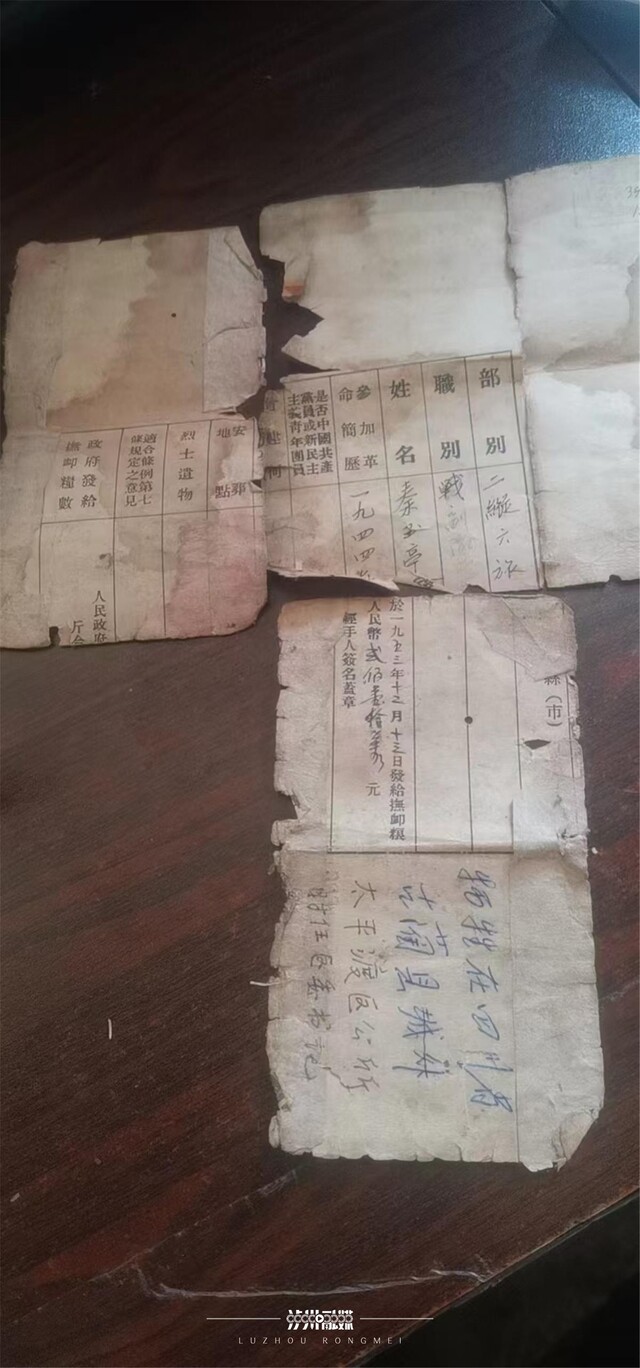 部別 二縱六旅
職別 戰
姓名 秦玉亭
參加革命簡歷 一九四四
是否中國共產黨員或新民主主義青年團員
安葬地點
烈士遺物
適合條例第七條規定之意見
政府發給撫卹糧數
人民政府
縣（市）
於一九五三年十二月十三日發給撫卹糧
人民幣貳佰 元
經手人簽名蓋章
牺牲在四川省
古蔺县
太平渡区公所
时任区委书记
泸州融媒
LUZHOU RONGMEI